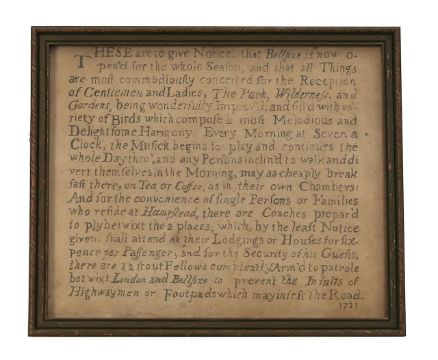 THESE are to give Notice that Bellsize is now o-
pen'd for the whole Season, and that all Things
are most commodiously concerted for the Reception
of Gentlemen and Ladies, The Park, Wilderness, and
Gardens, being wonderfully Improv'd, and fill'd with va-
riety of Birds which compose a most Melodious and
Delightsome Harmony. Every Morning at Seven a
Clock, the Musick begins to play and continues the
whole Day thro', and any Persons inclin'd to walk and di
vert themselves in the Morning, may as cheaply break
fast there, on Tea or Coffee, as in their own Chambers:
And for the convenience of single Persons or Families
who reside at Hampstead, there are Coaches prepar'd
to ply betwixt the 2 places, which, by the least Notice
given shall attend at their Lodgings or Houses for six-
pence per Passenger, and for the Security of his Guests,
there are 12 stout Fellows compleatly Arm'd to patrole
betwixt London and Bellsize to prevent the Insults of
Highwaymen or Footpads which may infest the Road.
1721